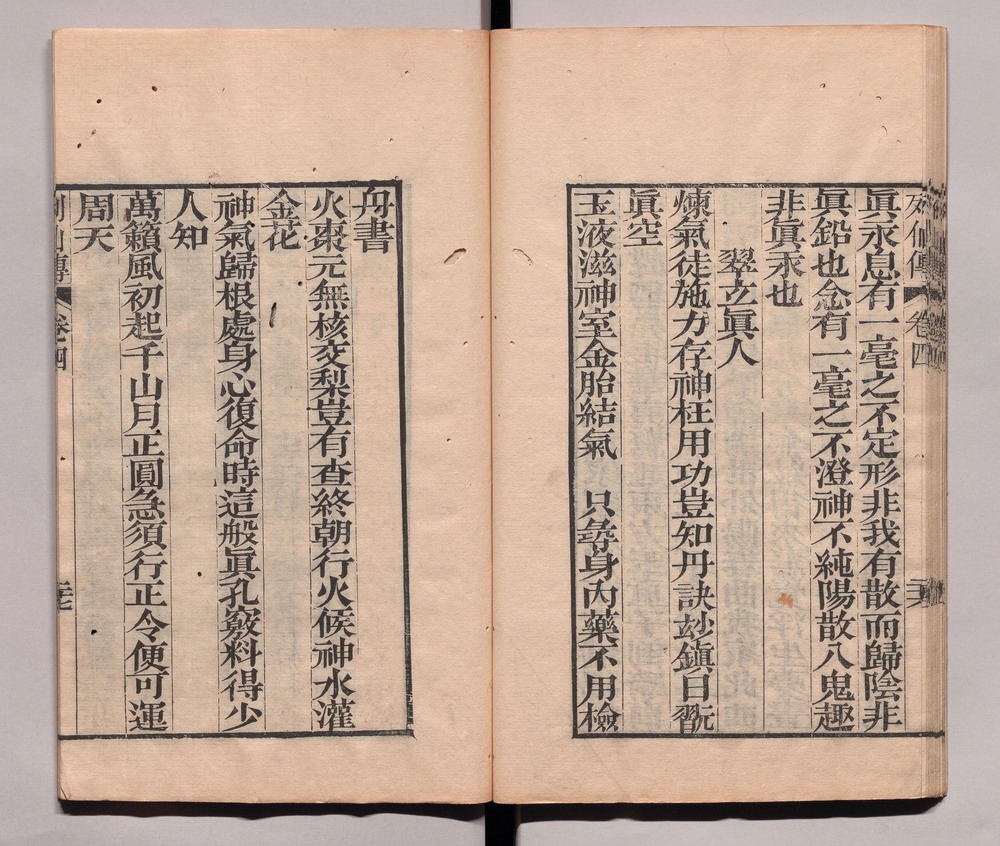 列仙傳 卷四
真汞息有一毫之不定形非我有散而歸陰非
眞鉛也念有一毫之不澄神不純陽散入鬼趣
非眞汞也
翠玄眞人
煉氣徒施力存神枉用功豈知丹訣玅鎭日翫
眞空
玉液滋神室金胎結氣 只尋身內藥不用檢
丹書
火棗元無核交梨豈有查終朝行火候神水灌
金花
神氣歸根處身心復命時這般眞孔竅料得少
人知
萬籟風初起千山月正圓急須行正令便可運
周天
列仙傳 卷四